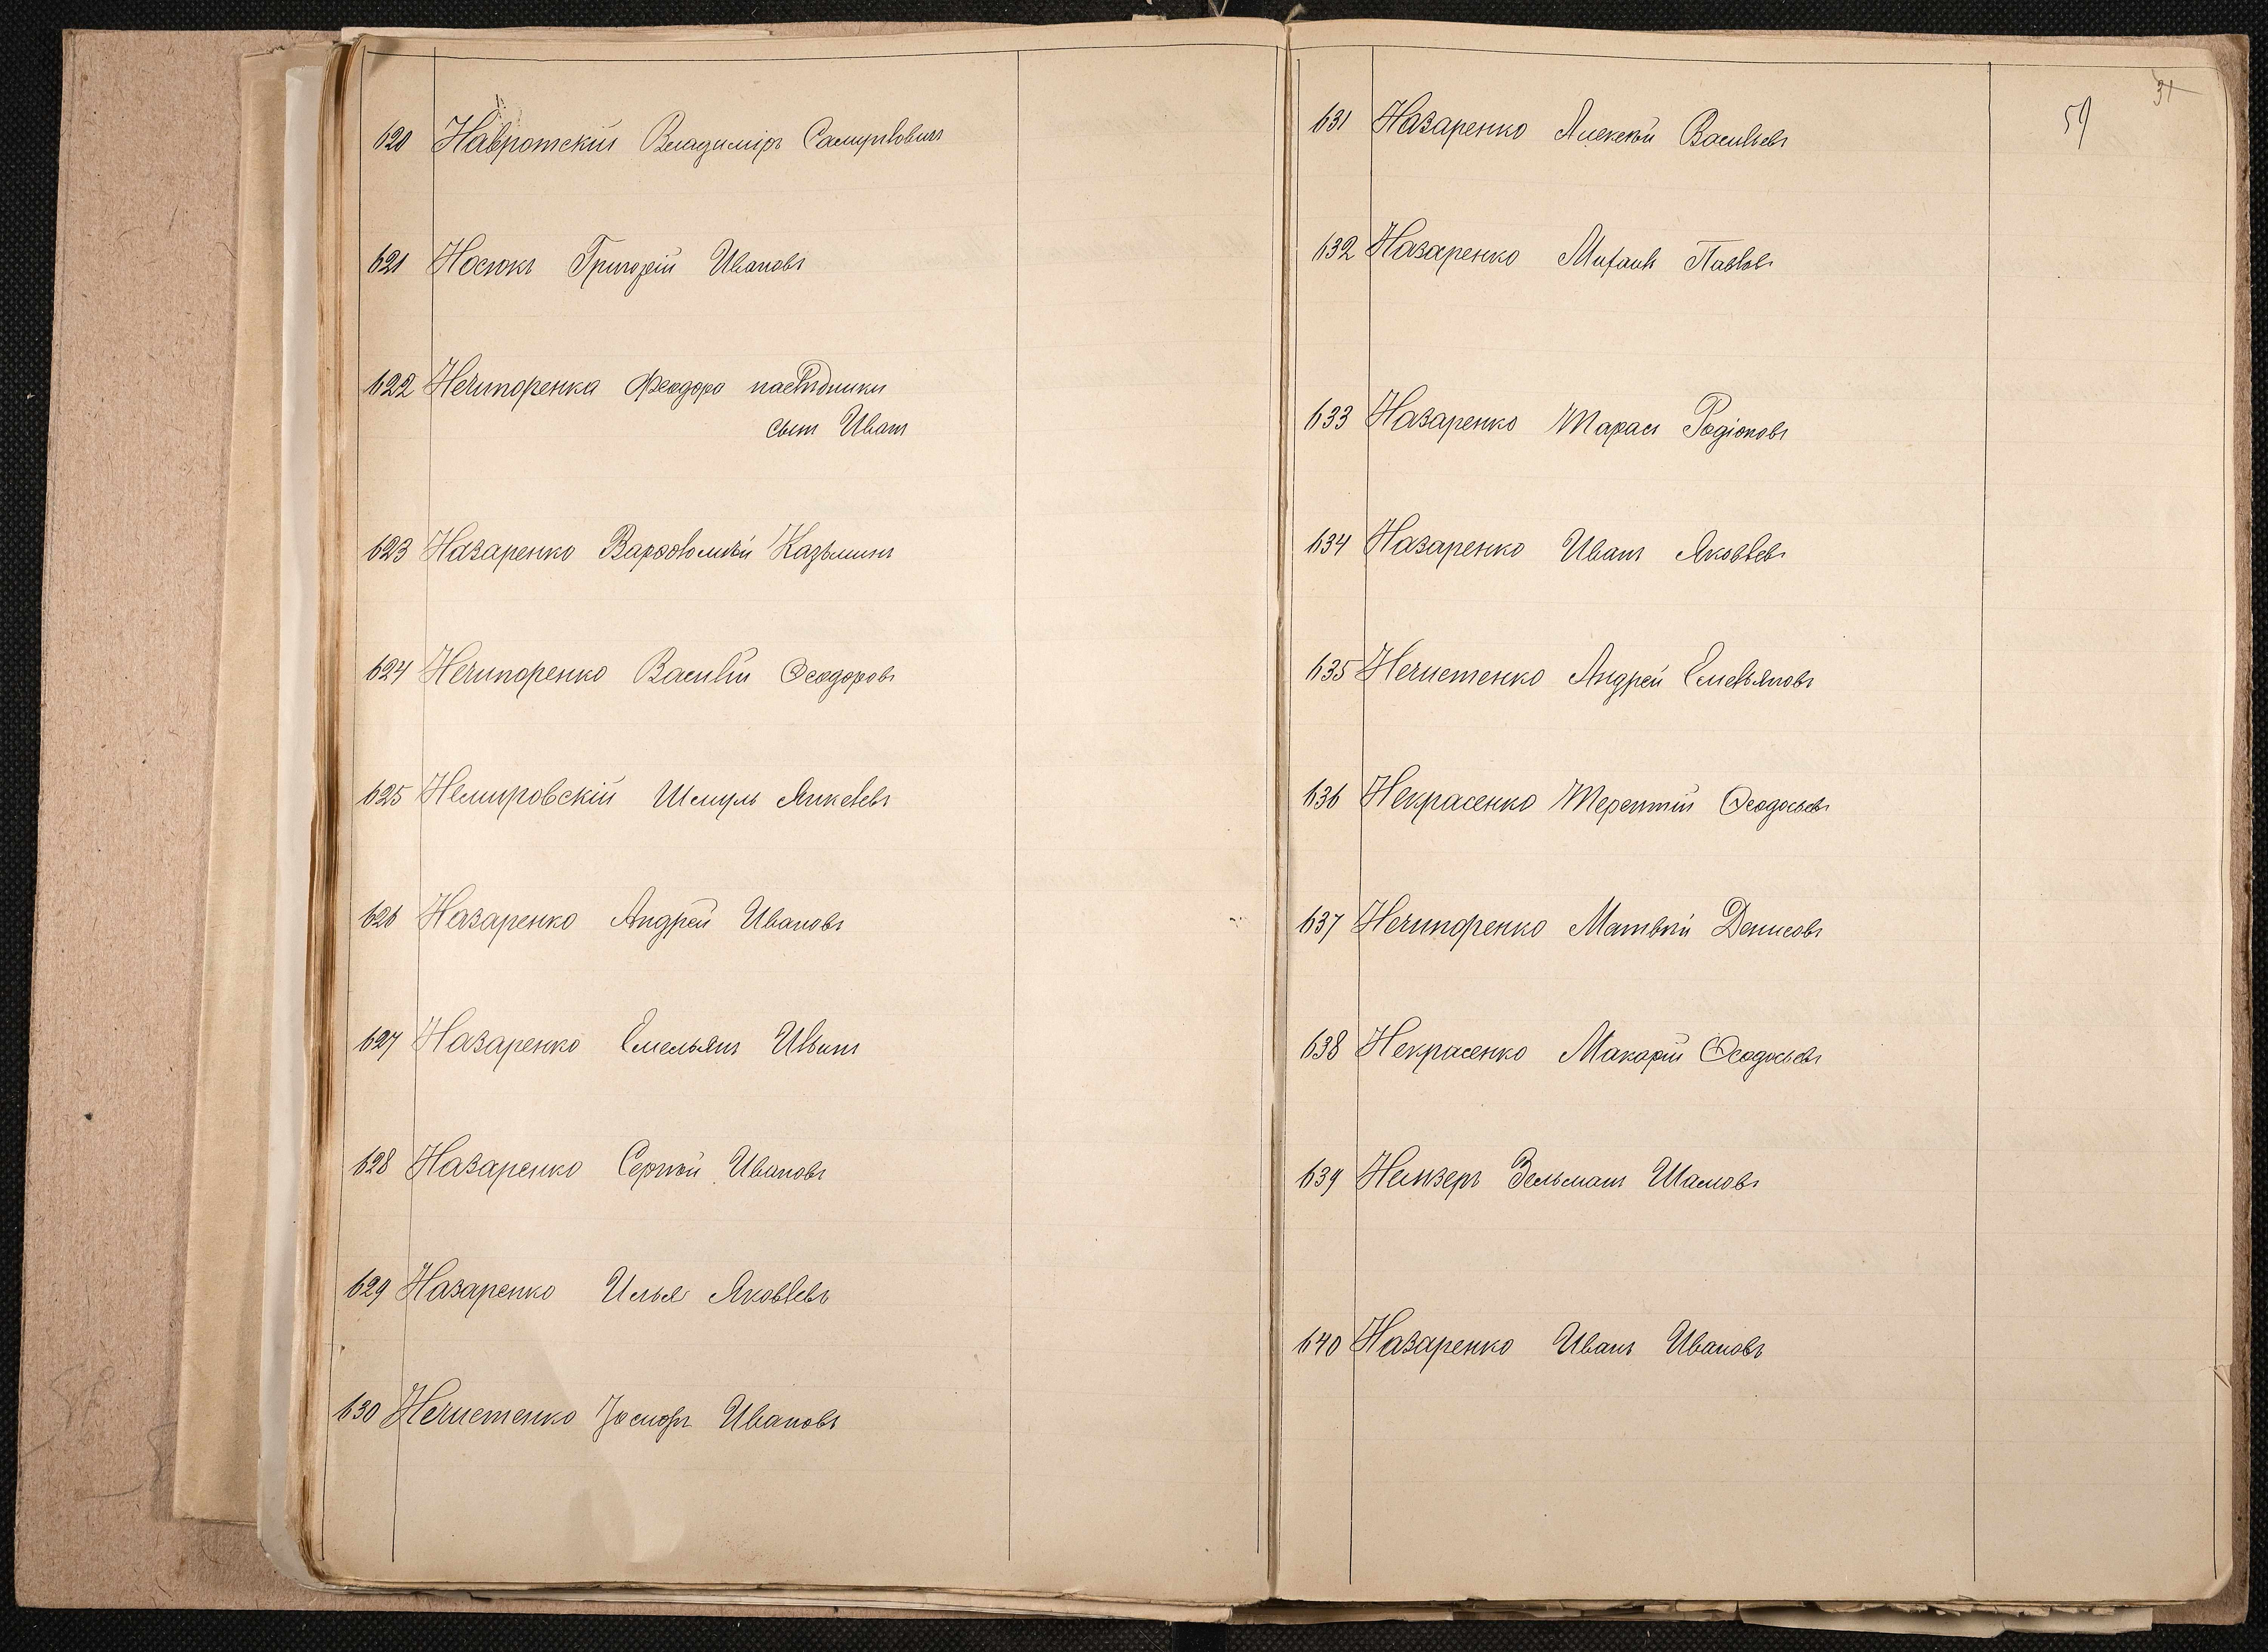 620 Навротскій Владиміръ Самуиловичъ
621 Носюкъ Григорій Ивановъ
622 Нечипоренка Феодора наслѣдники
сынъ Иванъ
623 Назаренко Варѳоломѣй Казьминъ
624 Нечипоренко Василій Ѳеодоровъ
625 Немировскій Шмуль Янкелевъ
626 Назаренко Андрей Ивановъ
627 Назаренко Емельянъ Ивановъ
628 Назаренко Сергѣй Ивановъ
629 Назаренко Илья Яковлевъ
630 Нечистенко Іосифъ Ивановъ
31
59
631 Назаренко Алексѣй Васильевъ
632 Назаренко Михаилъ Павловъ
633 Назаренко Тарасъ Родіоновъ
634 Назаренко Иванъ Яковлевъ
635 Нечистенко Андрей Емельяновъ
636 Некрасенко Терентій Ѳеодосьевъ
637 Нечипоренко Матвѣй Денисовъ
638 Некрасенко Макарій Ѳеодосьевъ
639 Зельманъ
640 Назаренко Иванъ Ивановъ